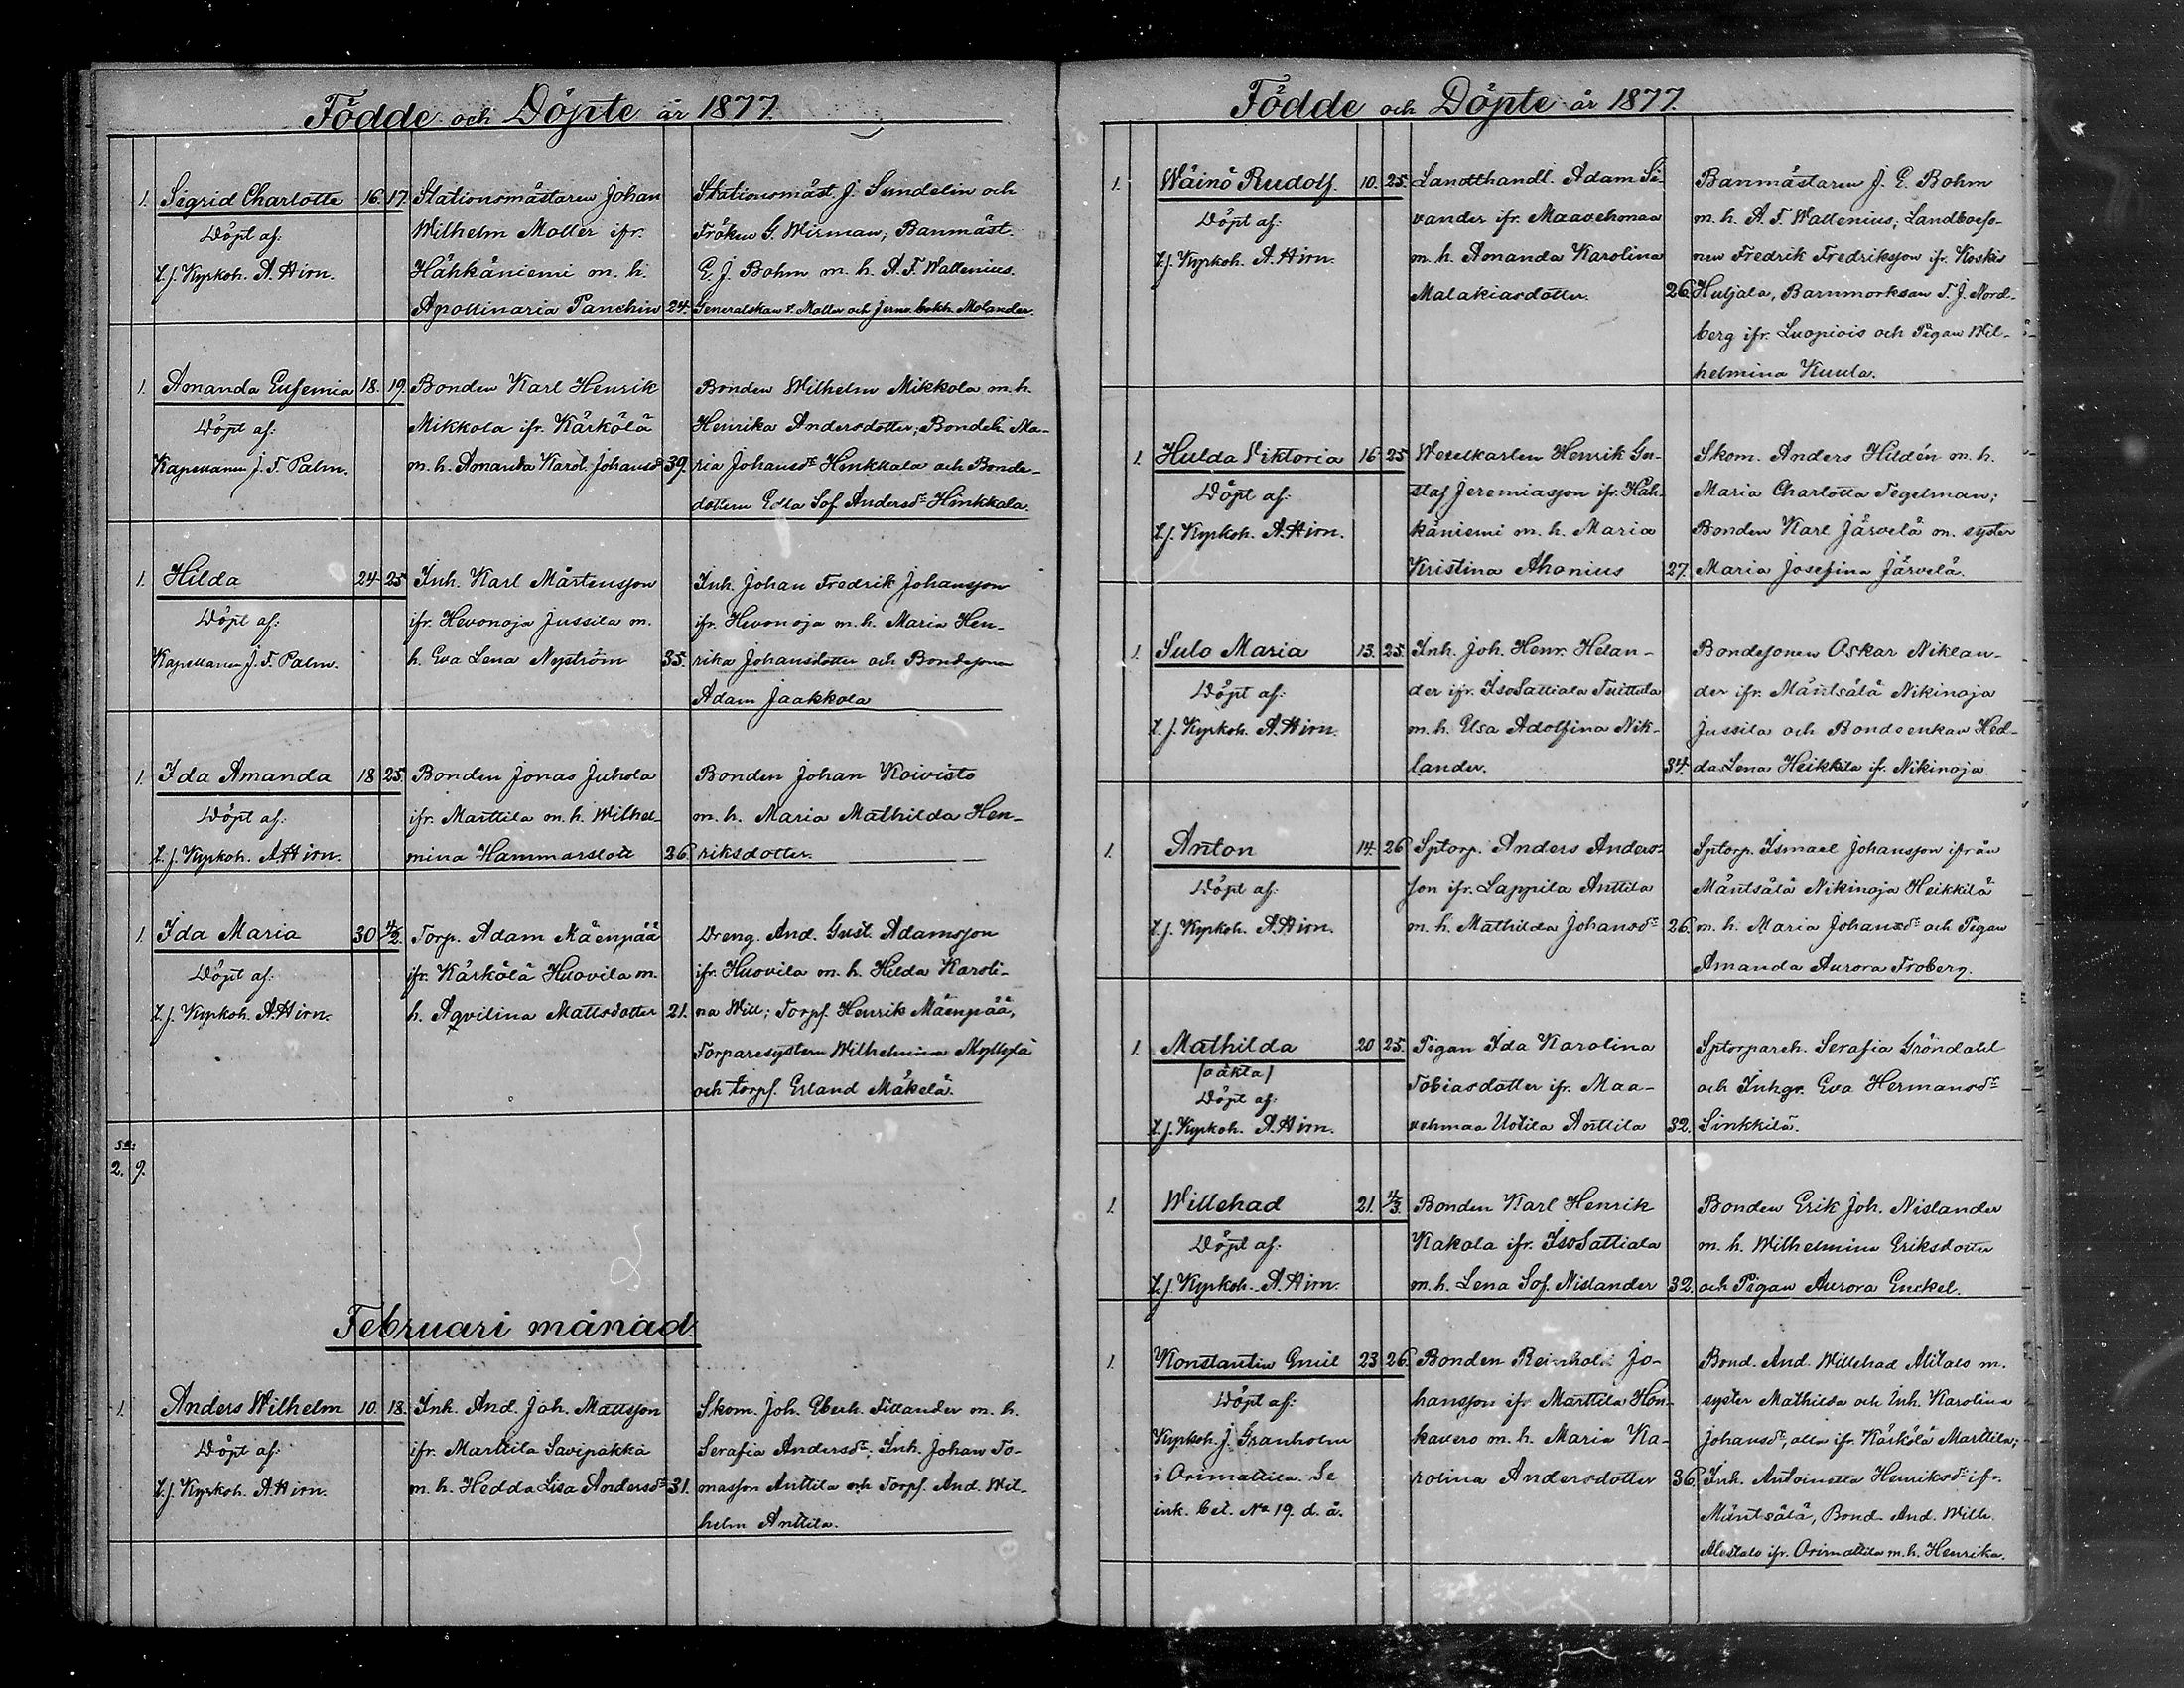 Födde och Döpte år 1877.
1. Sigrid Charlotte 16. 17. Stationsmästaren Johan Stationsmäst. J. Sundelin och
Döpt af: Wilhelm Moller ifr. Fröken G. Wirman; Banmäst.
t.f. Kyrkoh. A. Hirn. Hähkäniemi m. h. E. J. Bohm m. h. A. F. Wallenius.
Apollinaria Panchin 24. Generalskan Moller och Jernv. bokh. Molander.
1. Amanda Eufemia 18. 19. Bonden Karl Henrik Bonden Wilhelm Mikkola m. h.
Döpt af: Mikkola ifr. Kärkölä Henrika Andersdotter; Bondeh. Ma-
Kapellanen J. F. Palm. m. h. Amanda Karol. Johansdr 39. ria Johansdr Hinkkala och Bonde-
dottern Edla Sof. Andersdr Hinkkala.
1. Hilda 24 25 Inh. Karl Mårtensson Inh. Johan Fredrik Johansson
Döpt af: ifr. Hevonoja Jussila m. ifr. Hevonoja m. h. Maria Hen-
Kapellanen J. F. Palm. h. Eva Lena Nyström 35. rika Johansdotter och Bondesonen
Adam Jaakkola
1. Ida Amanda 18 25. Bonden Jonas Juhola Bonden Johan Koivisto
Döpt af: ifr. Marttila m. h. Wilhel- m. h. Maria Mathilda Hen-
t.f. Kyrkoh. A. Hirn. mina Hammarslott 26. riksdotter.
1. Ida Maria 30 4/2. Torp. Adam Mäenpää Dreng. And. Gust. Adamsson
Döpt af: ifr. Kärkölä Huovila m. ifr. Huovila m. h. Hilda Karoli-
t.f. Kyrkoh. A. Hirn. h. Aqvilina Mattsdotter 21. na Will; Torps. Henrik Mäenpää,
Torparesystern Wilhelmina Myllylä
och torps. Erland Mäkelä.
Sa:
2. 9.
Februari månad.
1. Anders Wilhelm 10. 18. Inh. And. Joh. Mattsson Skom. Joh. Eberh. Fillander m. h.
Döpt af: ifr. Marttila Savipakka Serafia Andersdr; Inh. Johan To-
t.f. Kyrkoh. A. Hirn. m. h. Hedda Lisa Andersdr 31. masson Anttila och Torps. And. Wil-
helm Anttila.
Födde och Döpte år 1877.
1. Wäinö Rudolf. 10. 25. Landthandl. Adam Si- Banmästaren J. E. Bohm
Döpt af: vander ifr. Maavehmaa m. h. A. F. Wallenius; Landboeso-
t.f. Kyrkoh. A. Hirn. m. h. Amanda Karolina nen Fredrik Fredriksson ifr. Koskis
Malakiasdotter. 26. Huljala, Barnmorskan F. J. Nord-
berg ifr. Luopiois och Pigan Wil-
helmina Kuula.
1. Hulda Viktoria 16 25 Wexelkarlen Henrik Gu- Skom. Anders Hildén m. h.
Döpt af: staf Jeremiasson ifr. Häh- Maria Charlotta Tegelman;
t.f. Kyrkoh. A. Hirn. käniemi m. h. Maria Bonden Karl Järvelä m. syster
Kristina Ahonius 27. Maria Josefina Järvelä.
1. Sulo Maria 13. 25. Inh. Joh. Henr. Helan- Bondesonen Oskar Niklan-
Döpt af: der ifr. IsoSattiala Tuittula der ifr. Mäntsälä Nikinoja
t.f. Kyrkoh. A. Hirn. m. h. Elsa Adolfina Nik- Jussila och Bondeenkan Hed-
lander. 34. da Lena Heikkila if. Nikinoja.
1. Anton 14. 26 Sptorp. Anders Anders- Sptorp. Ismael Johansson ifrån
Döpt af: son ifr. Lappila Anttila Mäntsälä Nikinoja Heikkilä
t.f. Kyrkoh. A. Hirn. m. h. Mathilda Johansdr 26. m. h. Maria Johansdr och Pigan
Amanda Aurora Froberg.
1. Mathilda 20 25. Pigan Ida Karolina Sptorpareh. Serafia Gröndahl
(oäkta) Tobiasdotter ifr. Maa- och Inhgr. Eva Hermansdr
Döpt af:
t.f. Kyrkoh. A. Hirn. vehmaa Uotila Anttila 32. Sinkkilä.
1. Willehad 21. 4/3. Bonden Karl Henrik Bonden Erik Joh. Nislander
Döpt af: Kakola ifr. IsoSattiala m. h. Wilhelmina Eriksdotter
t.f. Kyrkoh. A. Hirn. m. h. Lena Sof. Nislander 32. och Pigan Aurora Enckel.
1. Konstantin Emil 23 26. Bonden Reinhold Jo- Bond. And. Willehad Alitalo m.
Döpt af: hansson ifr. Marttila Hon- syster Mathilda och Inh. Karolina
Kyrkoh. J. Granholm kavero m. h. Maria Ka- Johansdr, alla ifr. Kärkölä Marttila;
i Orimattila. Se rolina Andersdotter 36. Inh. Antoinetta Henriksdr ifr.
ink. bet. No 19. d. å. Mäntsälä, Bond. And. Wilh.
Alestalo ifr. Orimattila m. h. Henrika.